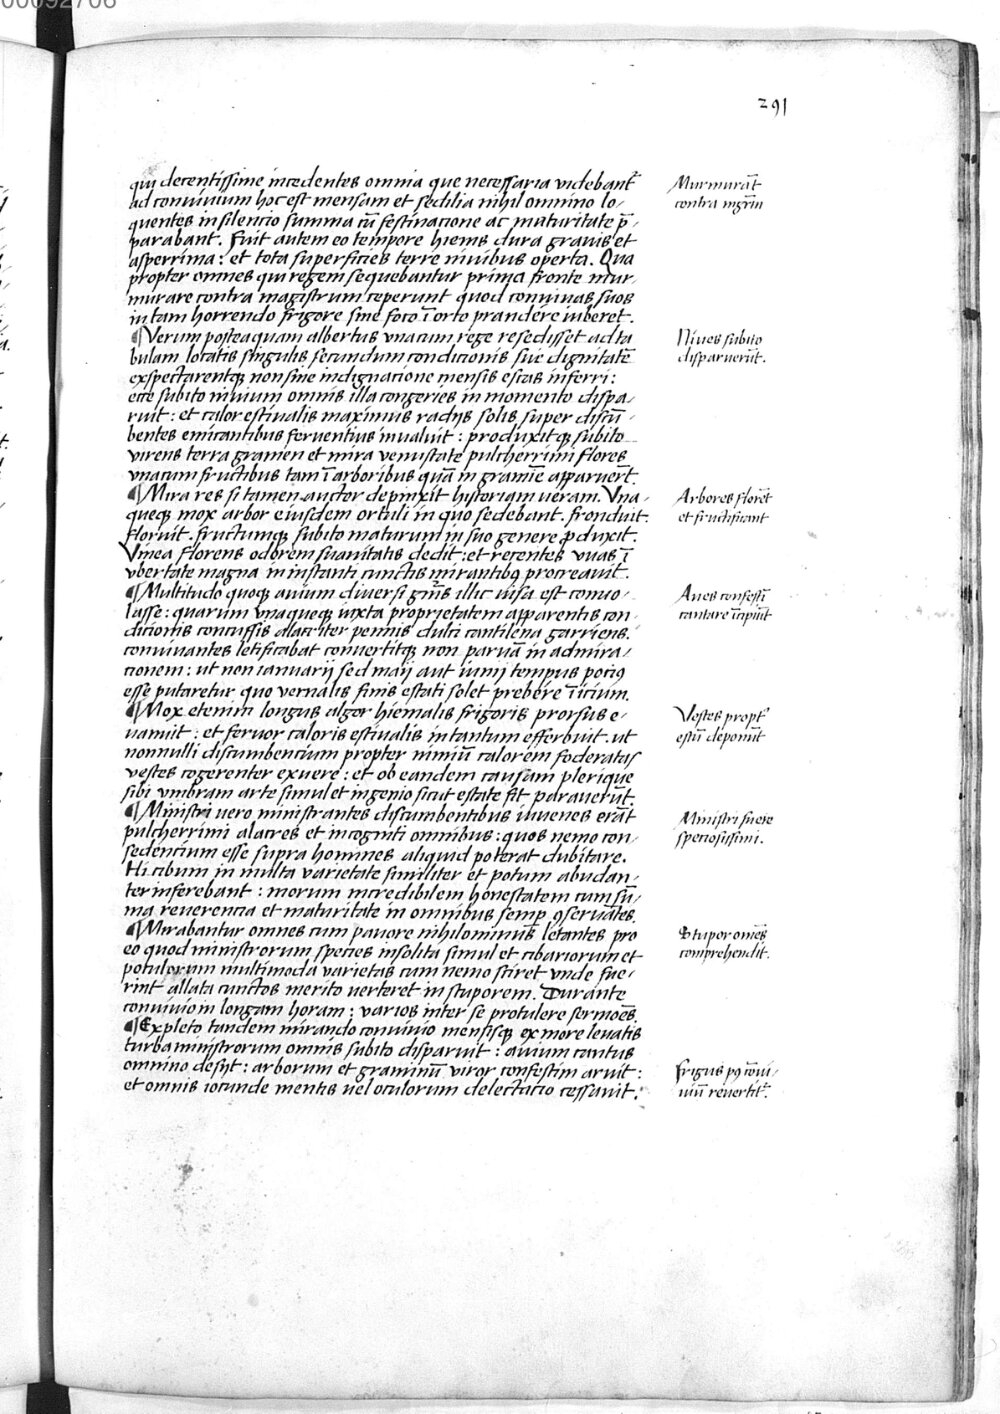 00092706
291
qui decentissime incedentes omnia que necessaria videbant᷑
ad conuiuium hoc est mensam et sedilia nihil omnino lo-
quentes in silencio summa cū festinacione ac maturitate p̄-
parabant. Fuit autem eo tempore hiems dura grauis et
asperrima: et tota superficies terre niuibus operta. Qua
propter omnes qui regem sequebantur prima fronte mur-
murare contra magistrum ceperunt quod conuiuas suos
in tam horrendo frigore sine foco ī orto prandere iuberet.
¶Verum posteaquam albertus vnacum rege resedisset ad ta
bulam locatis singulis secundum condicionis siue dignitatē
exspectarentqꝫ non sine indignacione mensis escas inferri:
ecce subito niuium omnis illa congeries in momento dispa-
ruit: et calor estiualis maximus radijs solis super discū-
bentes emicantibus feruentius inualuit: produxitqꝫ subito
virens terra gramen et mira venustate pulcherrimi flores
vnacum fructibus tam ī arboribus quā in gramīe apparuerūt.
¶Mira res si tamen auctor depinxit historiam ueram. Vna-
queqꝫ mox arbor eiusdem ortuli in quo sedebant. fronduit.
floruit. fructumqꝫ subito maturum in suo genere ꝓduxit.
Vinea florens odorem suauitatis dedit: et recentes vuas ī
vbertate magna in instanti cunctis mirantibꝰ procreauit.
¶Multitudo quoqꝫ auium diuersi gn̄is illic visa est conuo-
lasse: quarum vnaqueqꝫ iuxta proprietatem apparentis con-
dicionis concussis alacriter pennis dulci cantilena garriens.
conuiuantes letificabat conuertitqꝫ non paruā in admira-
cionem: ut non ianuarij sed maij aut iunij tempus pociꝰ
esse putaretur quo vernalis finis estati solet prebere īicium.
¶Mox etenim longus algor hiemalis frigoris prorsus e-
uanuit: et feruor caloris estiualis in tantum efferbuit. ut
nonnulli discumbencium propter nimiū calorem foderatas
vestes cogerenter exuere: et ob eandem causam plerique
sibi vmbram arte simul et ingenio sicut estate fit parauerūt.
¶Ministri uero ministrantes discumbentibus iuuenes erāt
pulcherrimi alacres et incogniti omnibus: quos nemo con-
sedencium esse supra homines aliquid poterat dubitare.
Hi cibum in multa varietate similiter et potum abudan-
ter inferebant: morum incredibilem honestatem cum sū-
ma reuerencia et maturitate in omnibus semꝑ ꝯseruātes.
¶Mirabantur omnes cum pauore nihilominus letantes pro
eo quod ministrorum species insolita simul et cibariorum et
potulorum multimoda varietas cum nemo sciret vnde fue-
rint allata cunctos merito verteret in stuporem. Durante
conuiuio in longam horam: varios inter se protulere sermoēs.
¶Expleto tandem mirando conuiuio mensisqꝫ ex more leuatis
turba ministrorum omnis subito disparuit: auium cantus
omnino desijt: arborum et graminū viror confestim aruit:
et omnis iocunde mentis uel oculorum delectacio cessauit.
Murmurāt
contra mgr̄m
Niues subito
disparuerūt.
Arbores florēt
et fructificant
Aues confestī
cantare īcipiūt
Vestes propt᷑
estū deponūt
Ministri fuere
speciosissimi.
Stupor omēs
comprehendit.
Frigus pꝯ cōui-
uiū reuertit᷑.